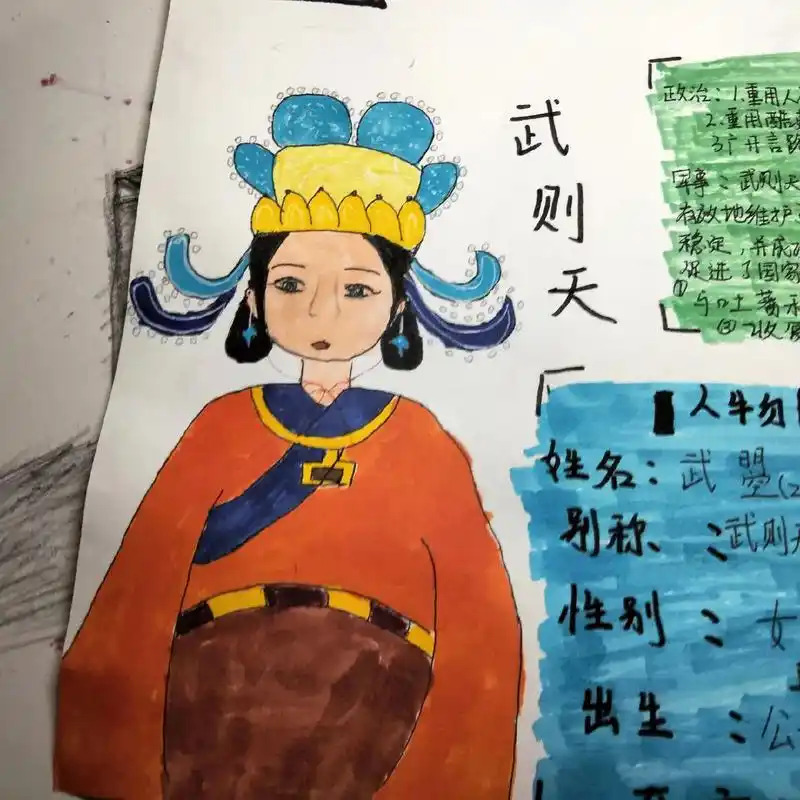 武则天
政治：1.重用人
2.重用酷
3广开言路
军事：武则天
有效地维护
稳定，并成
促进了国家
人物
姓名：武曌
别称：武则天
性别：女
出生：公